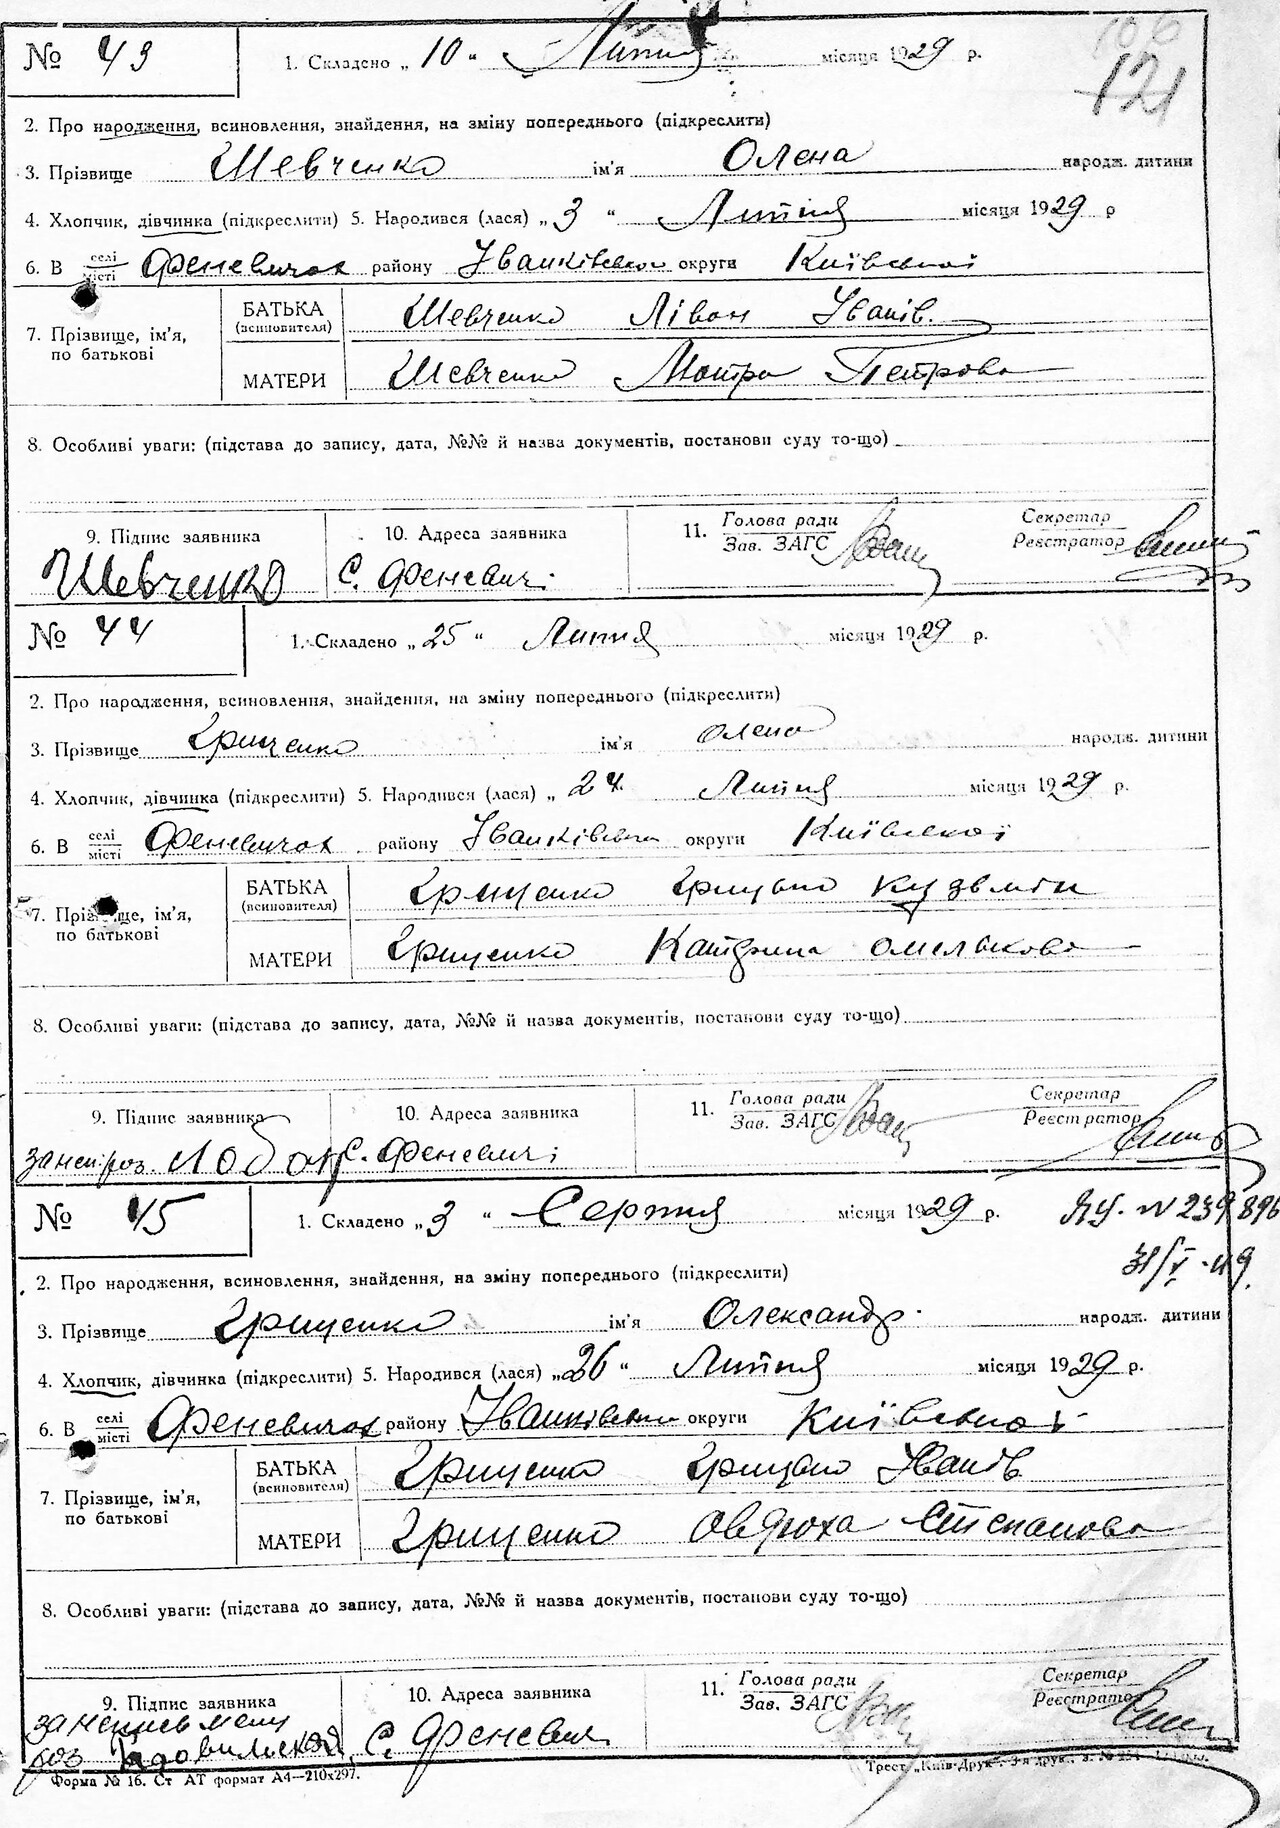 106
121
№ 43 1. Складено „ 10 “ Липня місяця 1929 р.
2. Про народження, всиновлення, знайдення, на зміну попереднього (підкреслити)
3. Прізвище Шевченко ім'я Олена народж. дитини
4. Хлопчик, дівчинка (підкреслити) 5. Народився (лася) „ 3 “ Липня місяця 1929 р
6. В селі/місті Феневичах району Іванківськ округи Київської
7. Прізвище, ім'я, по батькові
БАТЬКА (всиновителя) Шевченко Ліван Іванів.
МАТЕРИ Шевченко Мотря Петрова
8. Особливі уваги: (підстава до запису, дата, №№ й назва документів, постанови суду то-що)
9. Підпис заявника 10. Адреса заявника 11. Голова ради Зав. ЗАГС Секретар Реєстратор
Шевченко С. Феневичі
№ 44 1. Складено „ 25 “ Липня місяця 1929 р.
2. Про народження, всиновлення, знайдення, на зміну попереднього (підкреслити)
3. Прізвище Грищенко ім'я Олена народж. дитини
4. Хлопчик, дівчинка (підкреслити) 5. Народився (лася) „ 24 Липня місяця 1929 р.
6. В селі/місті Феневичах району Іванківськ округи Київської
7. Прізвище, ім'я, по батькові
БАТЬКА (всиновителя) Грищенко Грицько Кузьмін
МАТЕРИ Грищенко Катрина Омелькова
8. Особливі уваги: (підстава до запису, дата, №№ й назва документів, постанови суду то-що)
9. Підпис заявника 10. Адреса заявника 11. Голова ради Зав. ЗАГС Секретар Реєстратор
за непроз Лобан С. Феневичі
№ 45 1. Складено „ 3 “ Серпня місяця 1929 р.
ЯУ. N 239896
31/V-49.
2. Про народження, всиновлення, знайдення, на зміну попереднього (підкреслити)
3. Прізвище Грищенко ім'я Олександр народж. дитини
4. Хлопчик, дівчинка (підкреслити) 5. Народився (лася) „ 26 “ Липня місяця 1929 р.
6. В селі/місті Феневичах району Іванківськ округи Київської
7. Прізвище, ім'я, по батькові
БАТЬКА (всиновителя) Грищенко Грицько Іванів
МАТЕРИ Грищенко Овдюха Степанова
8. Особливі уваги: (підстава до запису, дата, №№ й назва документів, постанови суду то-що)
9. Підпис заявника 10. Адреса заявника 11. Голова ради Зав. ЗАГС Секретар Реєстратор
за неписьмен
роз С. Феневичі
Форма № 16. Ст АТ формат А4—210х297. Трест „Київ-Друк“. 3-я друк.